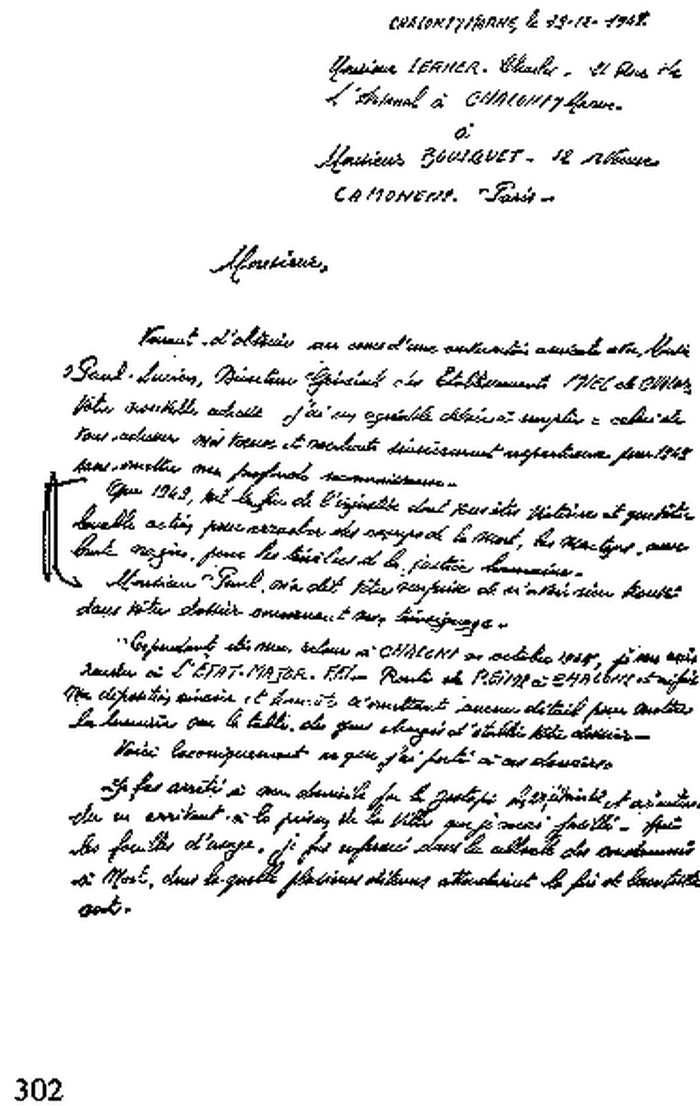 CHALONS/MARNE, le 29-12-1948
Monsieur LERNER. Charles. 21 Rue de
L'Arsenal à CHALONS/Marne.
à
Monsieur BOUSQUET. 12 Avenue
CAMOENS. Paris.
Monsieur,
Venant d'obtenir au cours d'une
Paul. Lucien, Directeur Général des Etablissements de
Votre nouvelle adresse j'ai un agréable devoir à remplir = celui de
Vous adresser mes voeux et souhaits sincèrement respectueux pour 1949
sans omettre ma profonde reconnaissance.
Que 1949, soit la fin de l'injustice dont vous êtes victime et que votre
louable action pour arracher des de la mort, les martyrs,
soit par les de la justice humaine.
Monsieur Paul, m'a dit votre surprise de n'avoir rien trouvé
dans votre dossier concernant mon témoignage.
Cependant dès mon retour à CHALONS en octobre 1944, je me suis
rendu à L'ETAT-MAJOR. FFI Route de REIMS à CHALONS et
Ma déposition sincère et n'omettant aucun détail pour mettre
la lumière sur la table, des gens chargés d'établir votre dossier
Voici laconiquement ce que j'ai porté à ces dossiers
Je fus arrêté à mon domicile par la gestapo et
dès en arrivant à la prison de la Ville que je serai fusillé. Après
les fouilles d'usage, je fus enfermé dans la cellule des condamnés
à Mort, dans laquelle plusieurs détenus attendaient la fin de leur triste
sort.
302